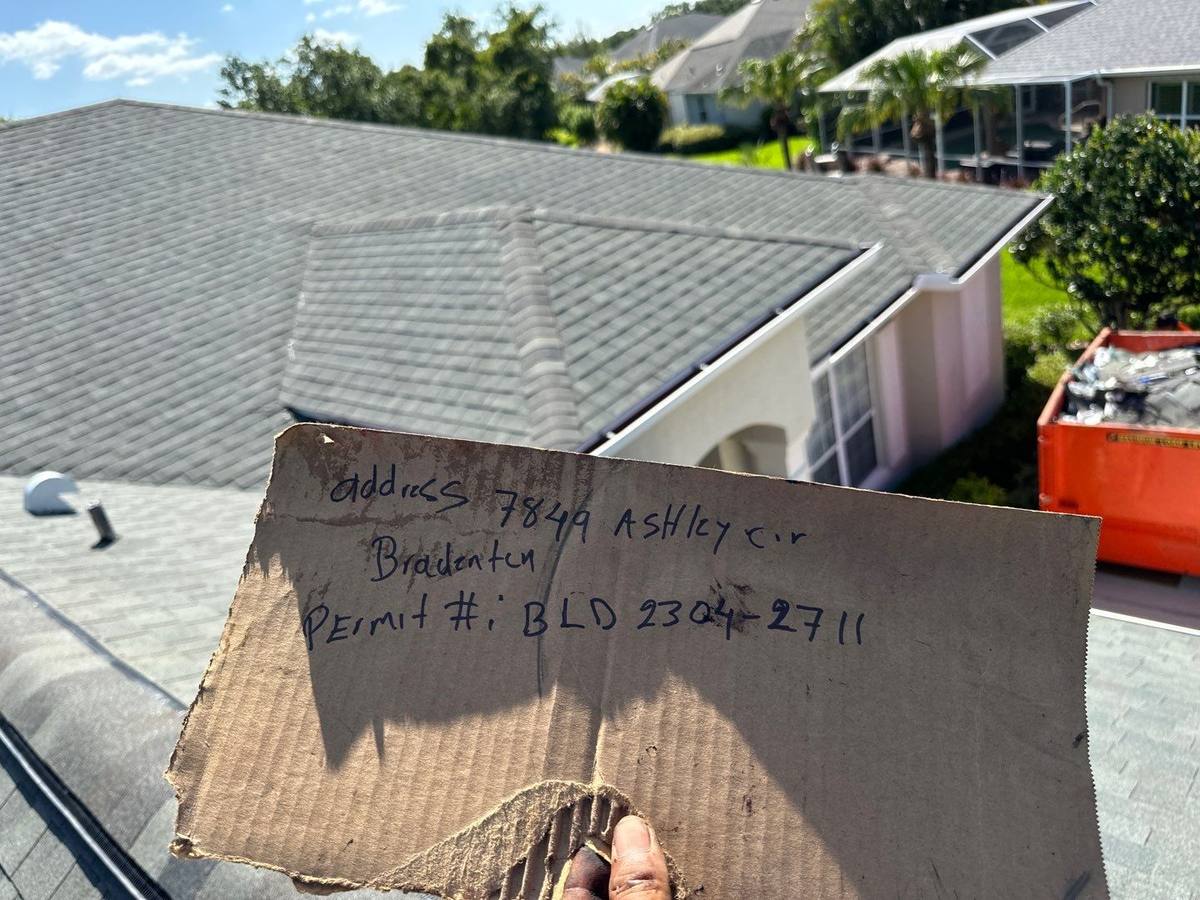 address 7849 AsHley cir
Bradenton
PErmit #: BLD 2304-2711